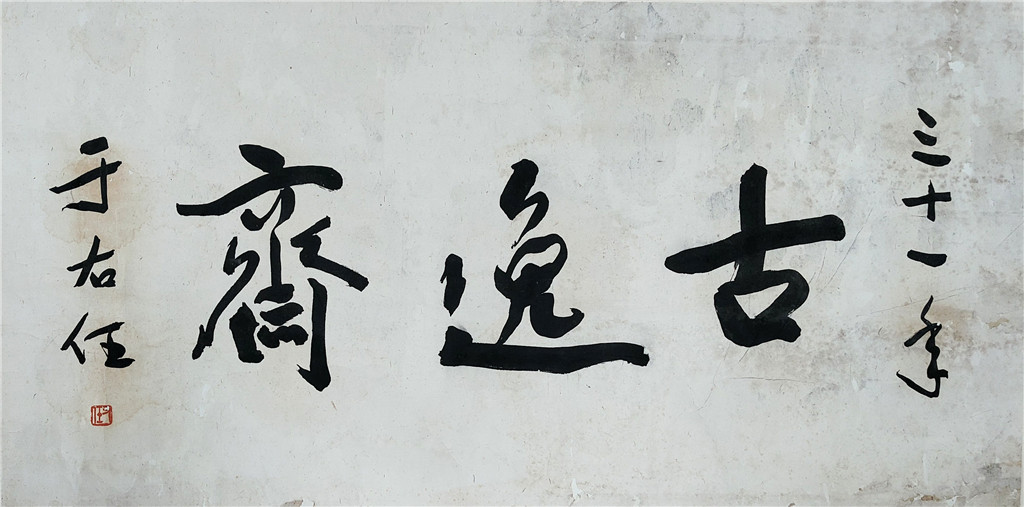 三十一年
古逸齋
于右任